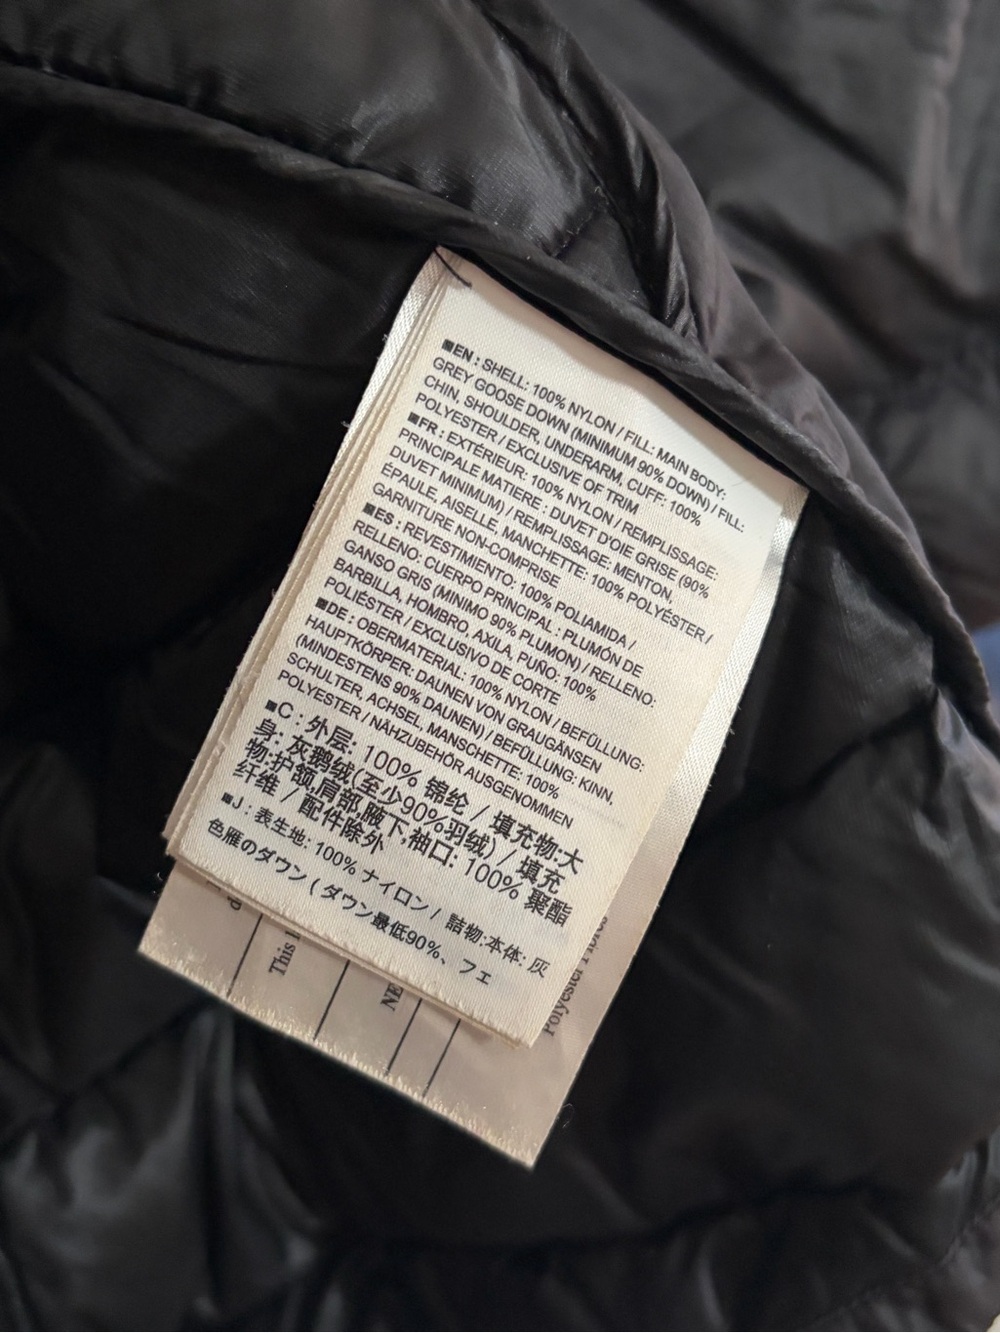 ■EN : SHELL: 100% NYLON / FILL: MAIN BODY:
GREY GOOSE DOWN (MINIMUM 90% DOWN) / FILL:
CHIN, SHOULDER, UNDERARM, CUFF: 100%
POLYESTER / EXCLUSIVE OF TRIM
■FR : EXTÉRIEUR: 100% NYLON / REMPLISSAGE:
PRINCIPALE MATIERE : DUVET D'OIE GRISE (90%
DUVET MINIMUM) / REMPLISSAGE: MENTON,
ÉPAULE, AISELLE, MANCHETTE: 100% POLYÉSTER /
GARNITURE NON-COMPRISE
■ES : REVESTIMIENTO: 100% POLIAMIDA /
RELLENO: CUERPO PRINCIPAL : PLUMÓN DE
GANSO GRIS (MINIMO 90% PLUMON) / RELLENO:
BARBILLA, HOMBRO, AXILA, PUÑO: 100%
POLIÉSTER / EXCLUSIVO DE CORTE
■DE : OBERMATERIAL: 100% NYLON / BEFÜLLUNG:
HAUPTKÖRPER: DAUNEN VON GRAUGÄNSEN
(MINDESTENS 90% DAUNEN) / BEFÜLLUNG: KINN,
SCHULTER, ACHSEL, MANSCHETTE: 100%
POLYESTER / NÄHZUBEHÖR AUSGENOMMEN
■C : 外层: 100% 锦纶 / 填充物:大
身: 灰鹅绒(至少90%羽绒) / 填充
物:护颈,肩部,腋下,袖口: 100% 聚酯
纤维 / 配件除外
■J : 表生地: 100% ナイロン / 詰物:本体: 灰
色雁のダウン ( ダウン最低90%、フェ
This
NE
Polyester Fibres